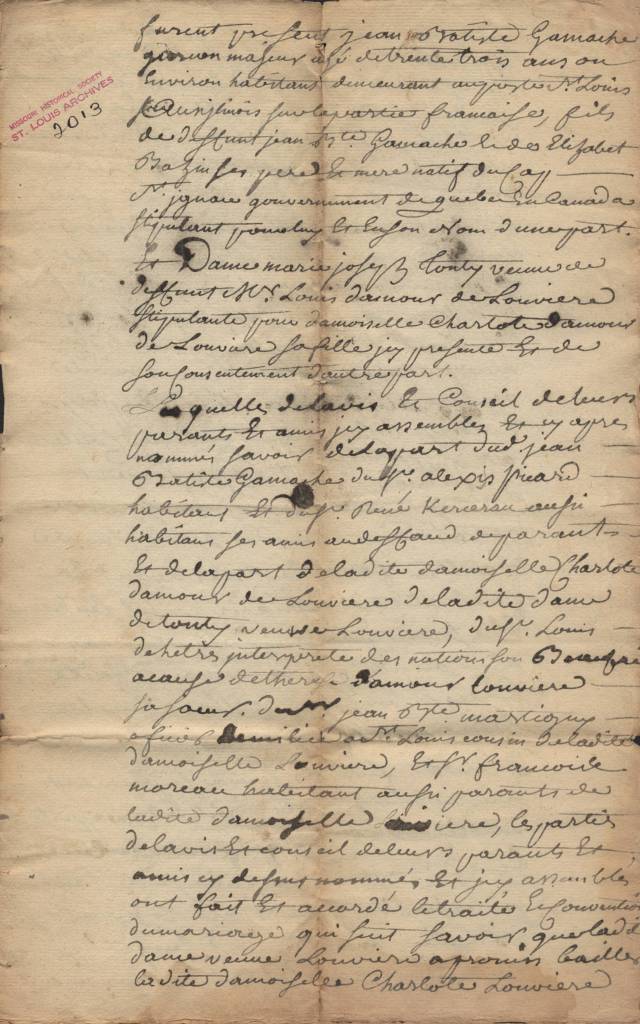 MISSOURI HISTORICAL SOCIETY
ST. LOUIS ARCHIVES
2013
furent present jean Batiste Gamache
garson majeur agé de trente trois ans ou
Environ habitant demeurant au poste St. Louis
aux jlinois sur la partie framaise, fils
de deffunt jean Bte. Gamache & de Elisabet
Bazin ses pere Et mere natif du Cap
St. jgnace gouvernement de quebec En Canada
stipulant pour luy Et En son Nom d'une part.
Et Dame marie joseph tonty veuve de
deffunt Mr. Louis damour de Louviere
stipulante pour damoiselle Charlote damour
de Louviere sa fille jcy presente Et de
son Consentement dautre part.
Lesquelles de lavis Et Conseil de leurs
parants Et amis jcy assembles Et cy apres
nommés savoir de la part dud. jean
Batiste Gamache du Sr. alexis Picard
habitans Et du Sr. René Kerceran aussi
habitans ses amis au deffaud de parants
Et de la part de ladite damoiselle Charlote
damour de Louviere de ladite dame
de tonty veuve Louviere, du Sr. Louis
dehetre interprete des nations son Beaufrere
a cause de therese damour Louviere
sa soeur. jean Bte. martigny
oficier de milice a St. Louis cousin de ladite
damoiselle Louviere, Et Sr. francois
moreau habitant aussi parants de
ladite damoiselle Louviere, les partis
de lavis Et conseil de leurs parants Et
amis cy dessus nommés Et jcy assemblés
ont fait Et accordé le traité Et Convention
du mariage qui suit savoir que ladite
dame veuve Louviere a promis bailler
ladite damoiselle Charlote Louviere